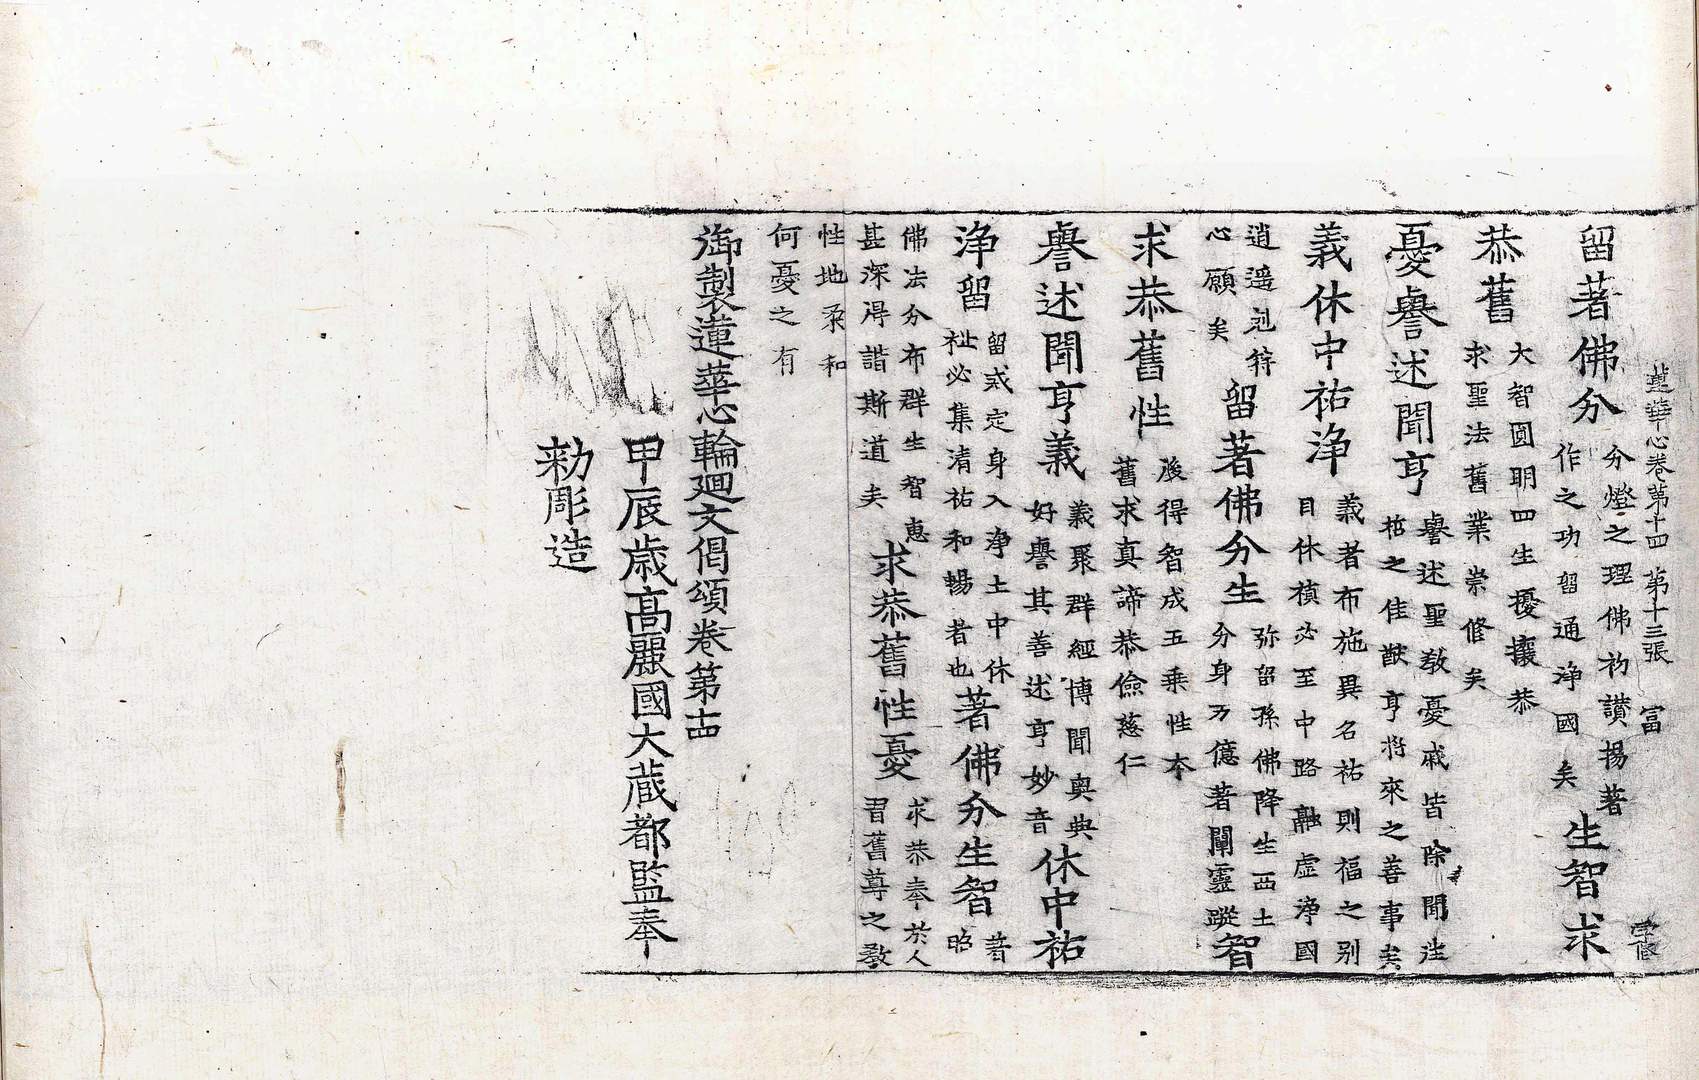 蓮華心卷第十四 第十三張 富
留著佛分
分燈之理佛礿讃揚著
作之功留通淨國矣
生智求
恭舊
大智圓明四生擾攘恭
求聖法舊業崇修矣
憂譽述聞亨
譽述聖教憂戚皆除聞往
哲之佳猷亨將來之善事矣
義休中祐淨
義者布施異名祐則福之别
目休禎必至中路融虛淨國
逍遥剋符
心願矣
留著佛分生
弥留孫佛降生西土
分身万億著闡靈蹤
智
求恭舊性
後得智成五乘性本
舊求真諦恭儉慈仁
譽述聞亨義
義聚群經博聞奥典
好譽其善述亨妙音
休中祐
淨留
留戒定身入淨土中休
祉必集清祐和暢者也
著佛分生智
著
昭
佛法分布群生智惠
甚深得諧斯道矣
求恭舊性憂
求恭奉於人
習舊尊之教
性地柔和
何憂之有
御製蓮華心輪廻文偈頌卷第十四
甲辰歳高麗國大藏都監奉
勑彫造